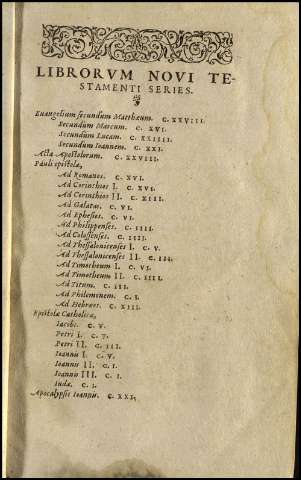 LIBRORVM NOVI TE-
STAMENTI SERIES.
Euangelium secundum Matthæum. c. XXVIII.
Secundum Marcum. c. XVI.
Secundum Lucam. c. XXIIII.
Secundum Ioannem. c. XXI.
Acta Apostolorum. c. XXVIII.
Pauli epistolæ,
Ad Romanos. c. XVI.
Ad Corinthios I. c. XVI.
Ad Corinthios II. c. XIII.
Ad Galatas. c. VI.
Ad Ephesios. c. VI.
Ad Philippenses. c. IIII.
Ad Colossenses. c. IIII.
Ad Thessalonicenses I. c. V.
Ad Thessalonicenses II. c. III.
Ad Timotheum I. c. VI.
Ad Timotheum II. c. IIII.
Ad Titum. c. III.
Ad Philemonem. c. I.
Ad Hebræos. c. XIII.
Epistolæ Catholicæ,
Iacobi. c. V.
Petri I. c. 7.
Petri II. c. III.
Ioannis I. c. V.
Ioannis II. c. I.
Ioannis III. c. I.
Iudæ. c. I.
Apocalypsis Ioannis. c. XXI.